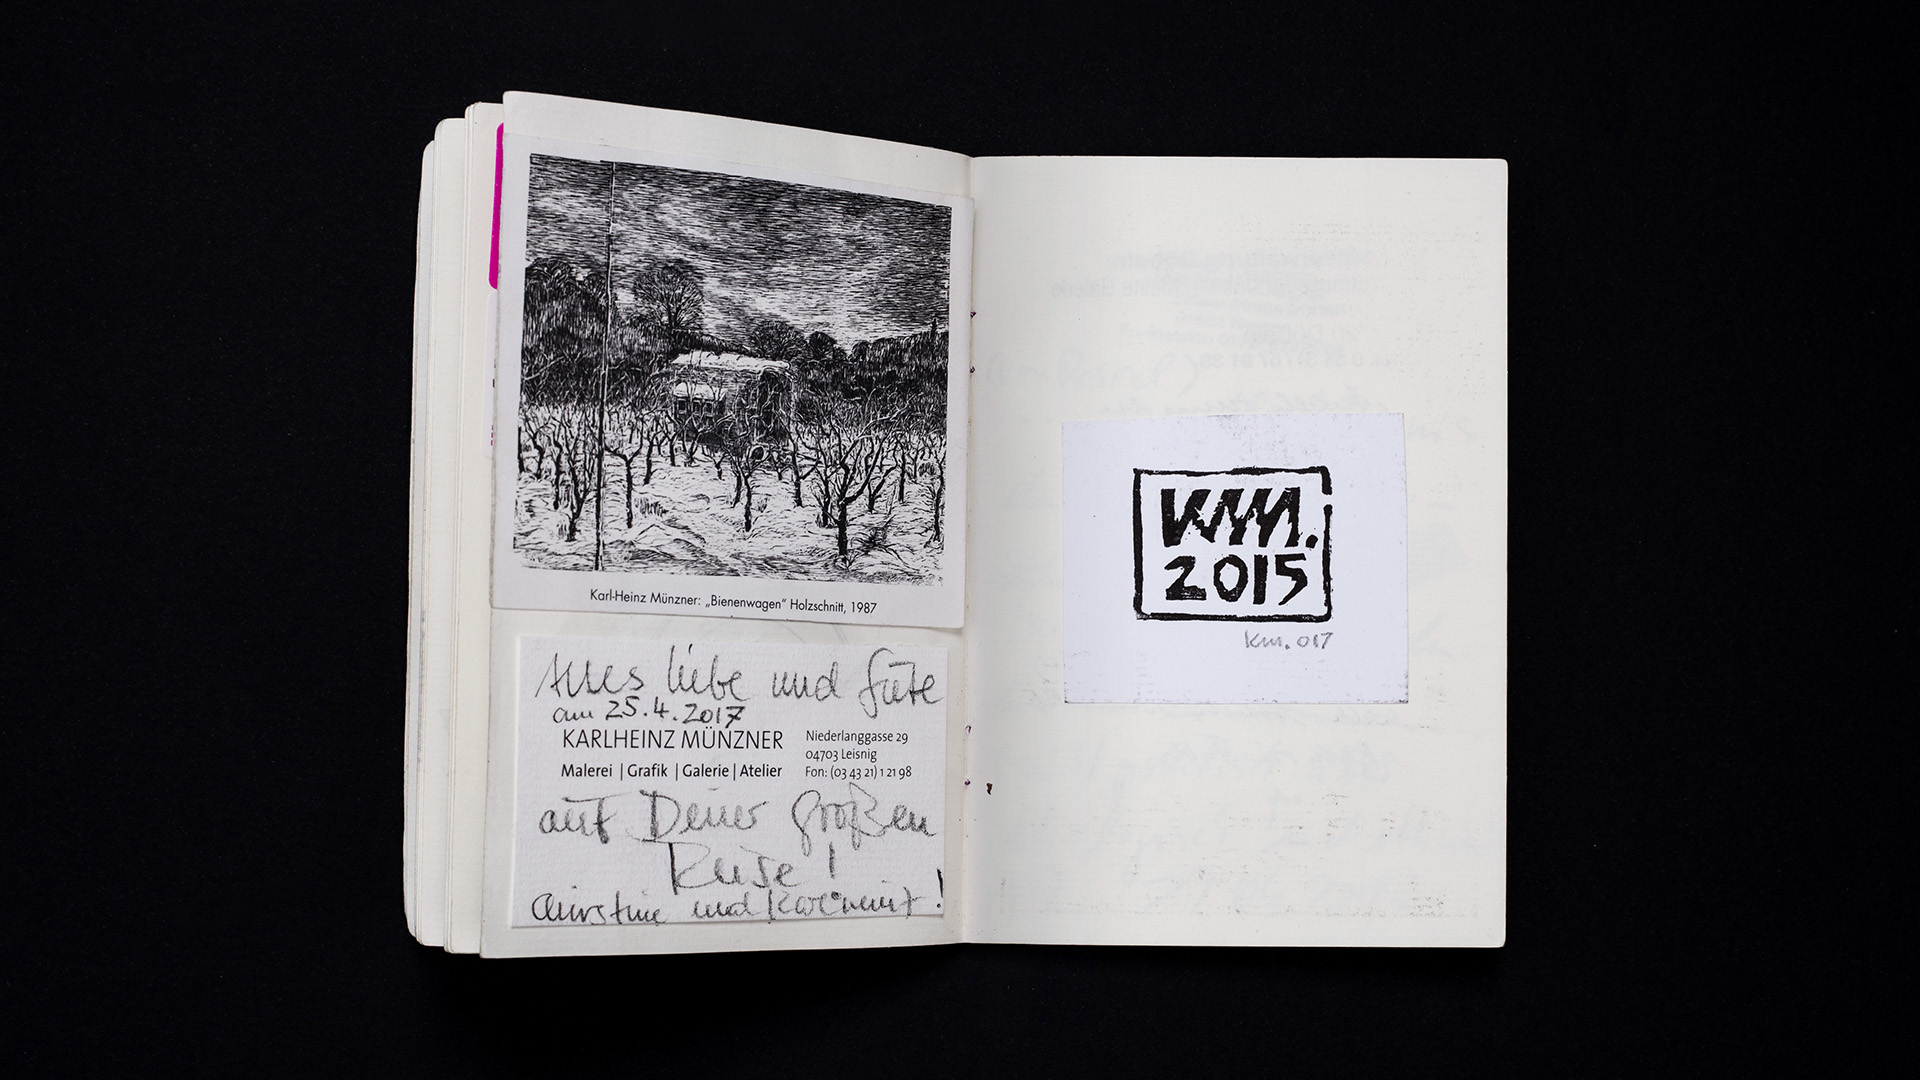 Karl-Heinz Münzner: „Bienenwagen“ Holzschnitt, 1987
Alles liebe und Gute
am 25.4.2017
KARLHEINZ MÜNZNER
Malerei | Grafik | Galerie | Atelier
Niederlanggasse 29
04703 Leisnig
Fon: (03 43 21) 1 21 98
auf Deiner großen
Reise!
Christine und Karlheinz!
KM.
2015
KM. 017